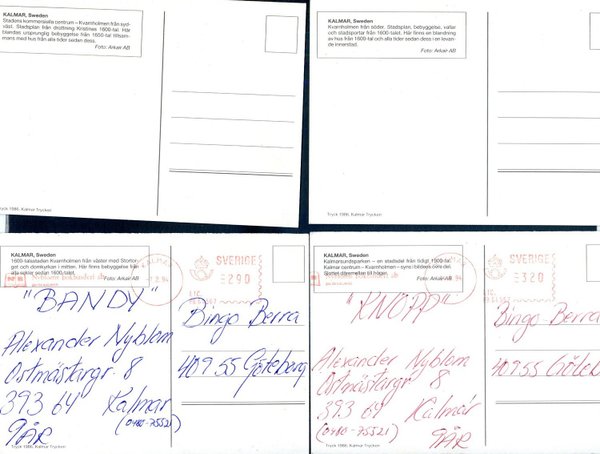 KALMAR, Sweden
Stadens kommersiella centrum – Kvarnholmen från syd-
väst. Stadsplan från drottning Kristinas 1600-tal. Här
blandas ursprunglig bebyggelse från 1600-tal tillsam-
mans med hus från alla tider sedan dess.
Foto: Arkair AB
Tryck 1986, Kalmar Trycken
KALMAR, Sweden
Kvarnholmen från söder. Stadsplan, bebyggelse, vallar
och stadsportar från 1600-tal. Här finns en blandning
av hus från 1600-tal och alla tider sedan dess i en levan-
de innerstad.
Foto: Arkair AB
Tryck 1986, Kalmar Trycken
KALMAR, Sweden
1600-talsstaden Kvarnholmen från väster med Stortor-
get och domkyrkan i mitten. Här finns bebyggelse från
alla tider sedan 1600-talet.
Foto: Arkair AB
SVERIGE
290
"BANDY"
Alexander Nyblom
Ostmästargr. 8
393 64 Kalmar
(0480-75521)
9ÅR
Bingo Berra
409 55 Göteborg
Tryck 1986, Kalmar Trycken
KALMAR, Sweden
Kalmarsundsparken – en stadsdel från tidigt 1900-tal.
Kalmar centrum – Kvarnholmen – syns i bildens övre del.
Slottet däremellan till höger.
Foto: Arkair AB
SVERIGE
320
"KNOPP"
Alexander Nyblom
Ostmästargr 8
393 64 Kalmar
(0480-75521)
9ÅR
Bingo Berra
409 55 Göteb
Tryck 1986, Kalmar Trycken